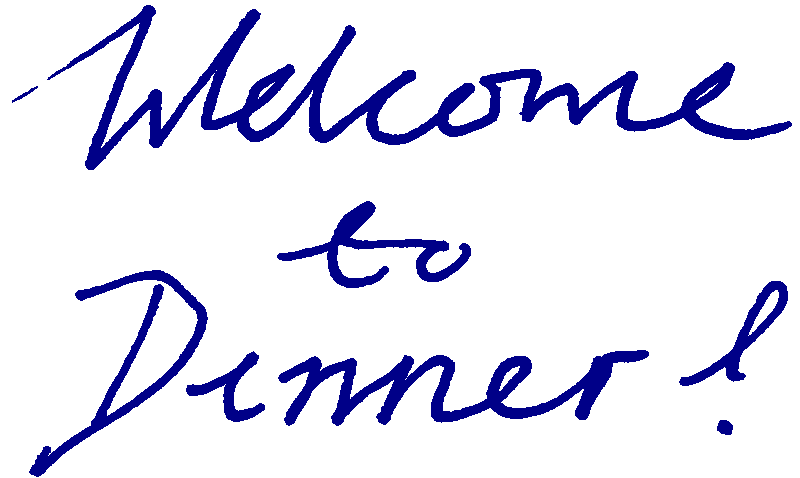 Welcome
to
Dinner!